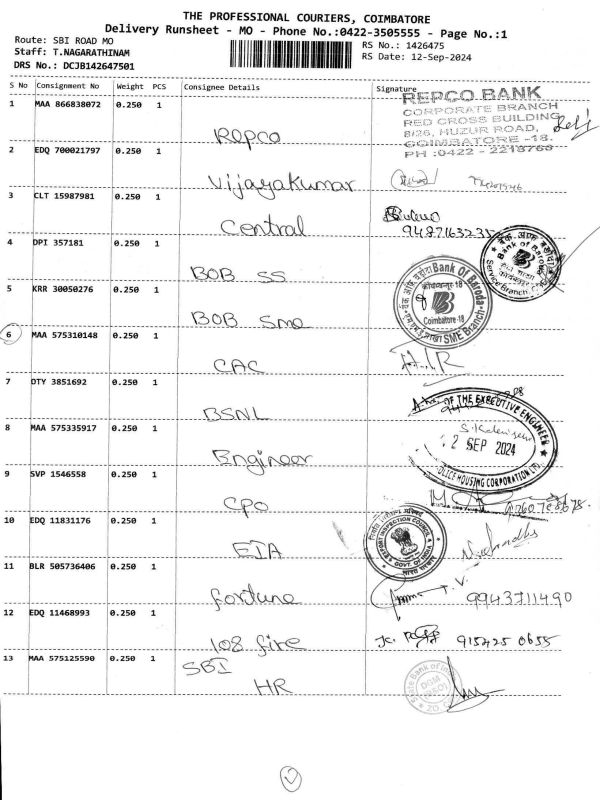 THE PROFESSIONAL COURIERS, COIMBATORE
Delivery Runsheet - MO - Phone No.:0422-3505555 - Page No.:1
Route: SBI ROAD MO
RS No.: 1426475
Staff: T.NAGARATHINAM
RS Date: 12-Sep-2024
DRS No.: DCJB142647501
S No Consignment No Weight PCS Consignee Details Signature
REPCO BANK
CORPORATE BRANCH
RED CROSS BUILDING
8/26, HUZUR ROAD,
COIMBATORE -18.
PH :0422 -
1 MAA 866838072 0.250 1
Repco
2 EDQ 700021797 0.250 1
Vijayakumar
3 CLT 15987981 0.250 1
Central
9487163231
4 DPI 357181 0.250 1
BOB SS
Bank Of Baroda
Service Branch,
5 KRR 30050276 0.250 1
BOB Sme
Bank Of Baroda
कोयम्बत्तूर-18
Coimbatore-18
SME Branch
6 MAA 575310148 0.250 1
CAC
7 DTY 3851692 0.250 1
BSNL
OF THE EXECUTIVE ENGINEER
8 MAA 575335917 0.250 1
Engineer
2 SEP 2024
POLICE HOUSING CORPORATION LTD.
9 SVP 1546558 0.250 1
CPO
10 EDQ 11831176 0.250 1
EIA
EXPORT INSPECTION COUNCIL
GOVT. OF INDIA
भारत सरकार
11 BLR 505736406 0.250 1
fortune
T.V.
9943711490
12 EDQ 11468993 0.250 1
108 fire
915225 0655
13 MAA 575125590 0.250 1
SBI
HR
State Bank of India
DGM